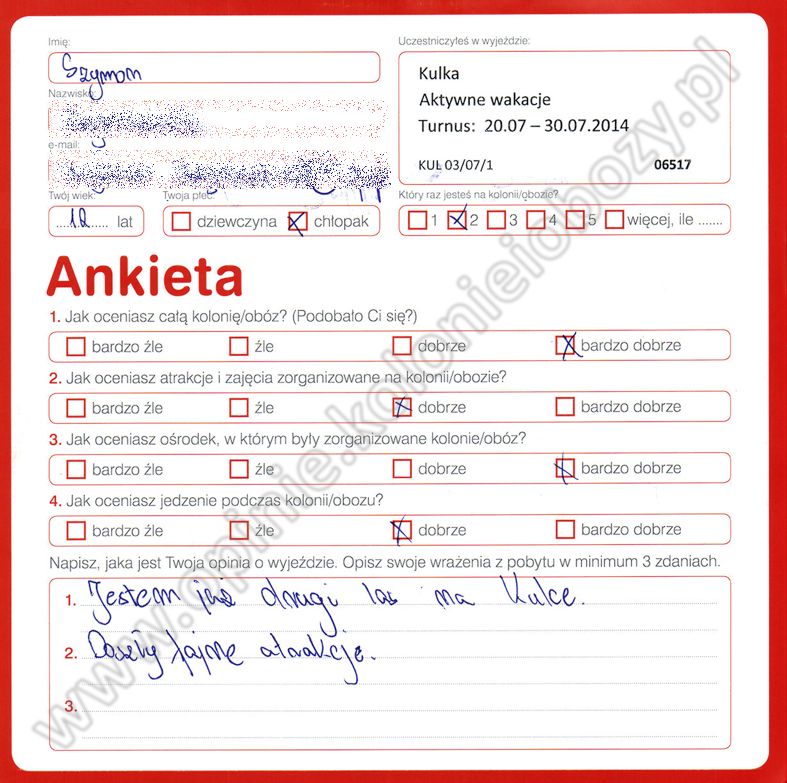 Imię:
Szymon
Uczestniczyłeś w wyjeździe:
Kulka
Aktywne wakacje
Turnus: 20.07 – 30.07.2014
KUL 03/07/1 06517
Nazwisko:
e-mail:
Twój wiek:
....12...... lat
Twoja płeć:
dziewczyna chłopak
Który raz jesteś na kolonii/obozie?
1 2 3 4 5 więcej, ile .......
Ankieta
1. Jak oceniasz całą kolonię/obóz? (Podobało Ci się?)
bardzo źle źle dobrze bardzo dobrze
2. Jak oceniasz atrakcje i zajęcia zorganizowane na kolonii/obozie?
bardzo źle źle dobrze bardzo dobrze
3. Jak oceniasz ośrodek, w którym były zorganizowane kolonie/obóz?
bardzo źle źle dobrze bardzo dobrze
4. Jak oceniasz jedzenie podczas kolonii/obozu?
bardzo źle źle dobrze bardzo dobrze
Napisz, jaka jest Twoja opinia o wyjeździe. Opisz swoje wrażenia z pobytu w minimum 3 zdaniach.
1. Jestem już drugi las na Kulce.
2. Doszły fajne atrakcje.
3.
www.opinie.kolonieiobozy.pl